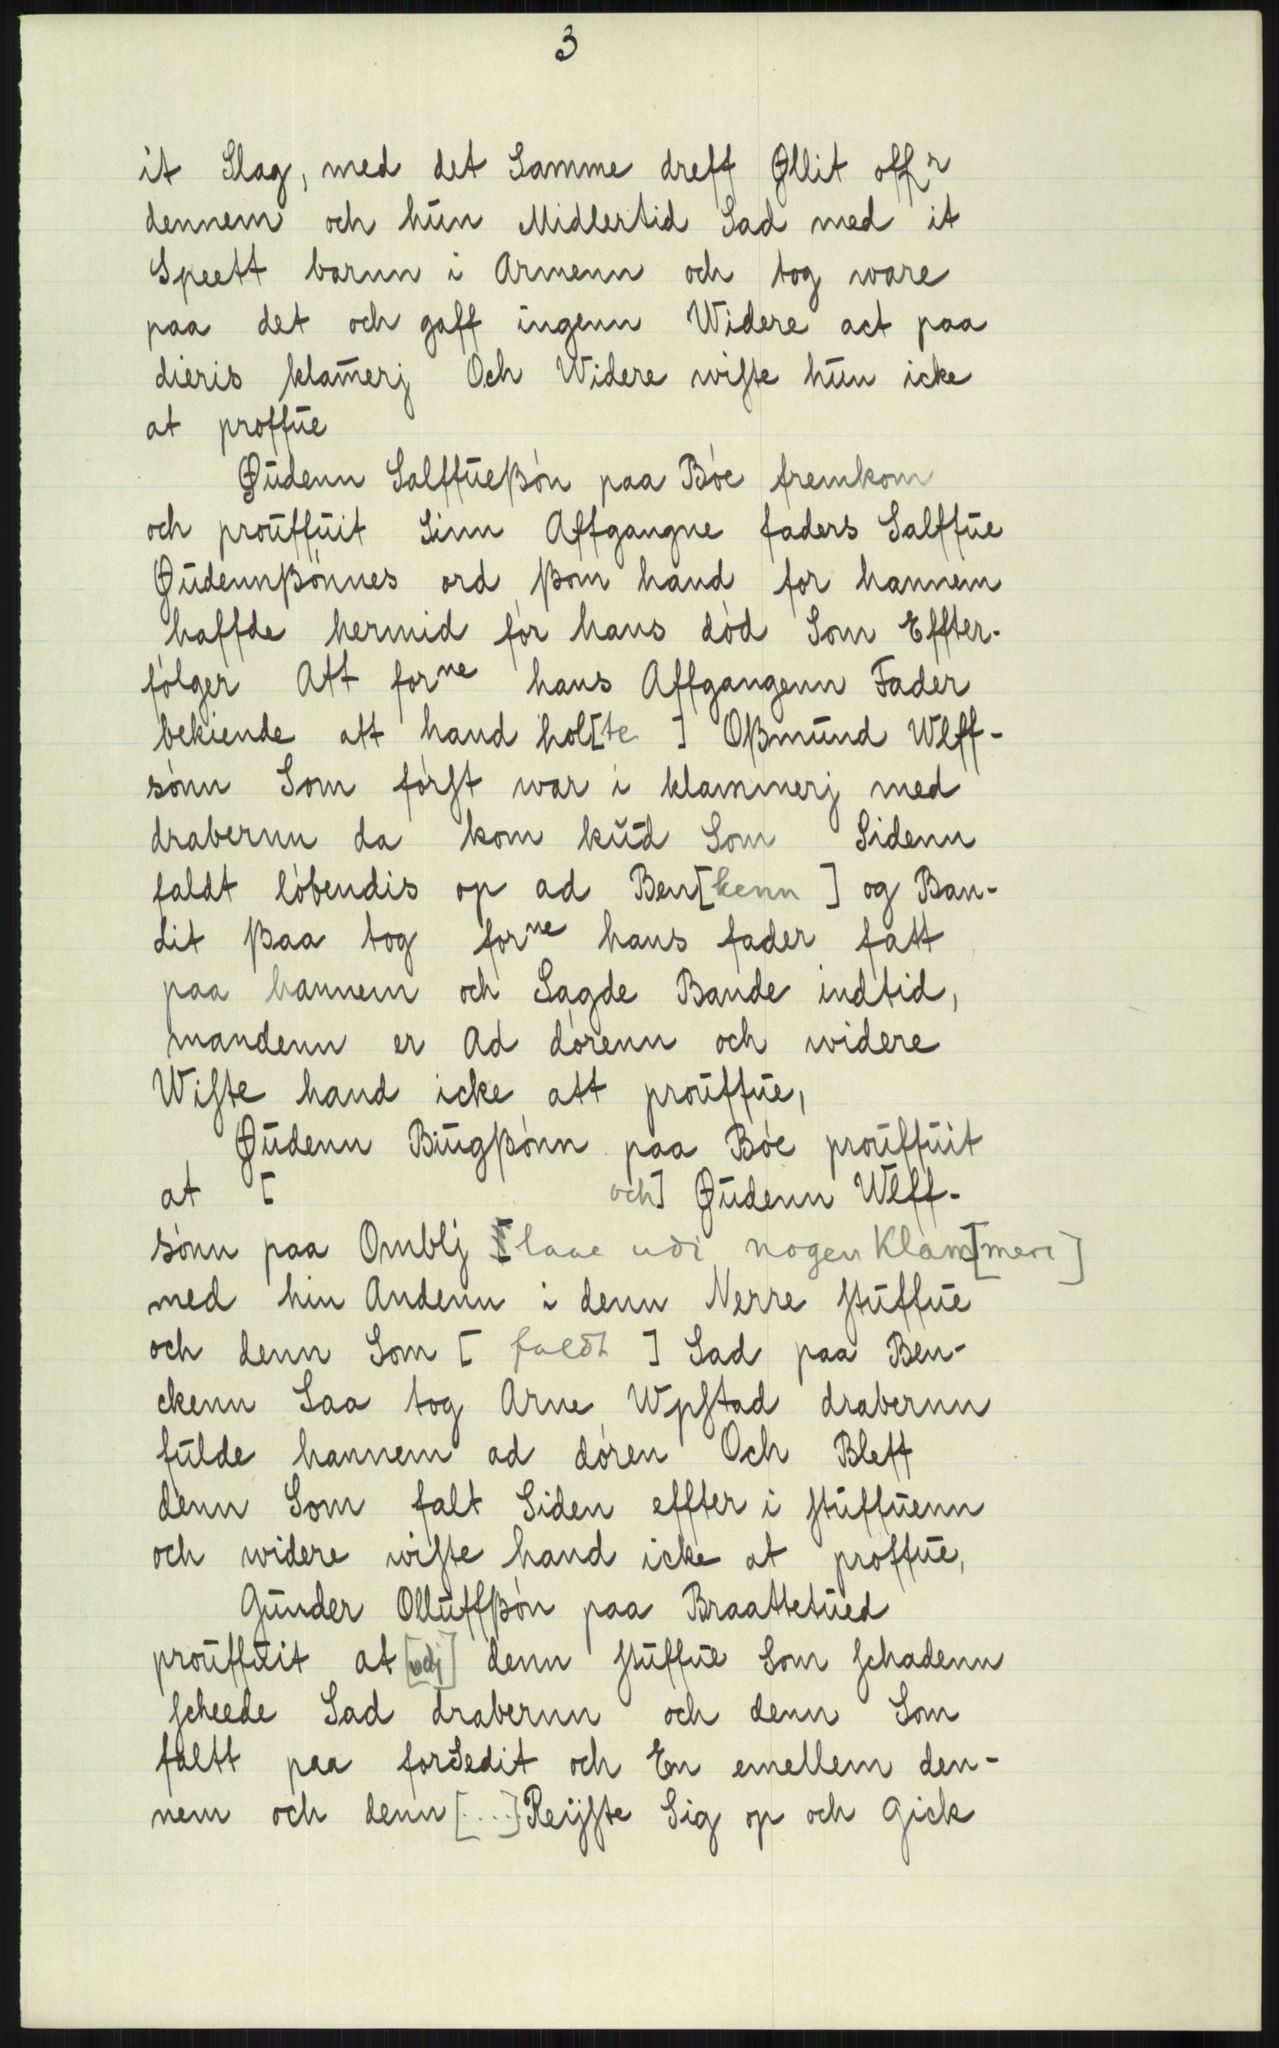 3
it Slag, med det Samme dreff Øllit offr
dennem och hun Midlertid Sad med it
Speett barnn i Armenn och tog ware
paa det och gaff ingenn Widere act paa
dieris klam̄erj Och Widere wiste hūn icke
at proffūe
Øūdenn Salffūeßón paa Bóe fremkom
och proūffūit Sinn Affgangne faders Salffūe
Øūdennßónnes ord ßom hand for hannem
haffde hermid fór hans dód Som Effter-
fólger Att forne hans Affgangenn Fader
bekiende att hand hol[te ] Oßmūnd Wlff-
sónn Som fórst war i klammerj med
drabernn da kom kūd Som Sidenn
faldt lóbendis op ad Ben[kenn ] og Ban-
dit ßaa tog forne hans fader fatt
paa hannem och Sagde Bande indtid,
mandenn er Ad dórenn och widere
Wiste hand icke att proūffūe,
Øūdenn Biūgßónn paa Bóe proūffūit
at [ och] Øūdenn Wlff-
sónn paa Omblj [laae udi nogen Klam[meri]
med hin Andenn i denn Nerre stūffūe
och denn Som [ faldt ] Sad paa Ben-
ckenn Saa tog Arne Wpstad drabernn
fūlde hannem ad dóren Och Bleff
denn Som falt Siden effter i stūffūenn
och widere wiste hand icke at proffūe,
Gūnder Ollūffßón paa Braattetūed
proūffūit at [udj] denn stūffūe Som schadenn
scheede Sad drabernn och denn Som
faltt paa forSedit och En emellem den-
nem och denn [....] Reÿste Sig op och Gick